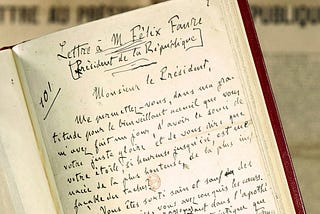 TTRE AU PRÉSID PUBLIQUE
Lettre à M. Félix Faure
Président de la République
Monsieur le Président,
Me permettez-vous, dans ma gra-
titude pour le bienveillant accueil que vous
m'avez fait un jour, d'avoir le souci de
votre juste gloire et de vous dire que
votre étoile, si heureuse jusqu'ici, est me
nacée de la plus honteuse, de la plus in
façable des taches?
Vous êtes sorti sain et sauf des
vous avez conquis les cœurs.
dans l'apothé
que